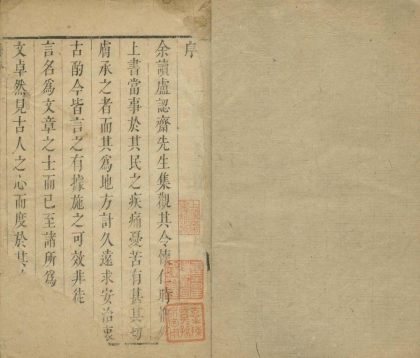 序
余讀盧認齋先生集觀其令懷仁時
上書當事於其民之疾痛憂苦有甚其切
膚承之者而其爲地方計久遠求安治裏
古酌今皆言之有據施之可效非徒
言名爲文章之士而已至諸所爲
文卓然見古人之心而度於其